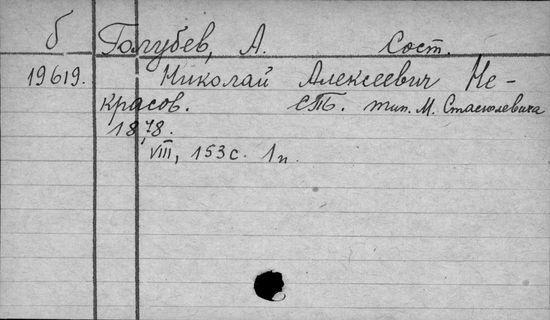 б Голубев, А. Сост.
19619. Николай Алексеевич Не-
красов. СПб. тип. М. Стасюлевича
1878.
VIII, 153 с. 1 п.